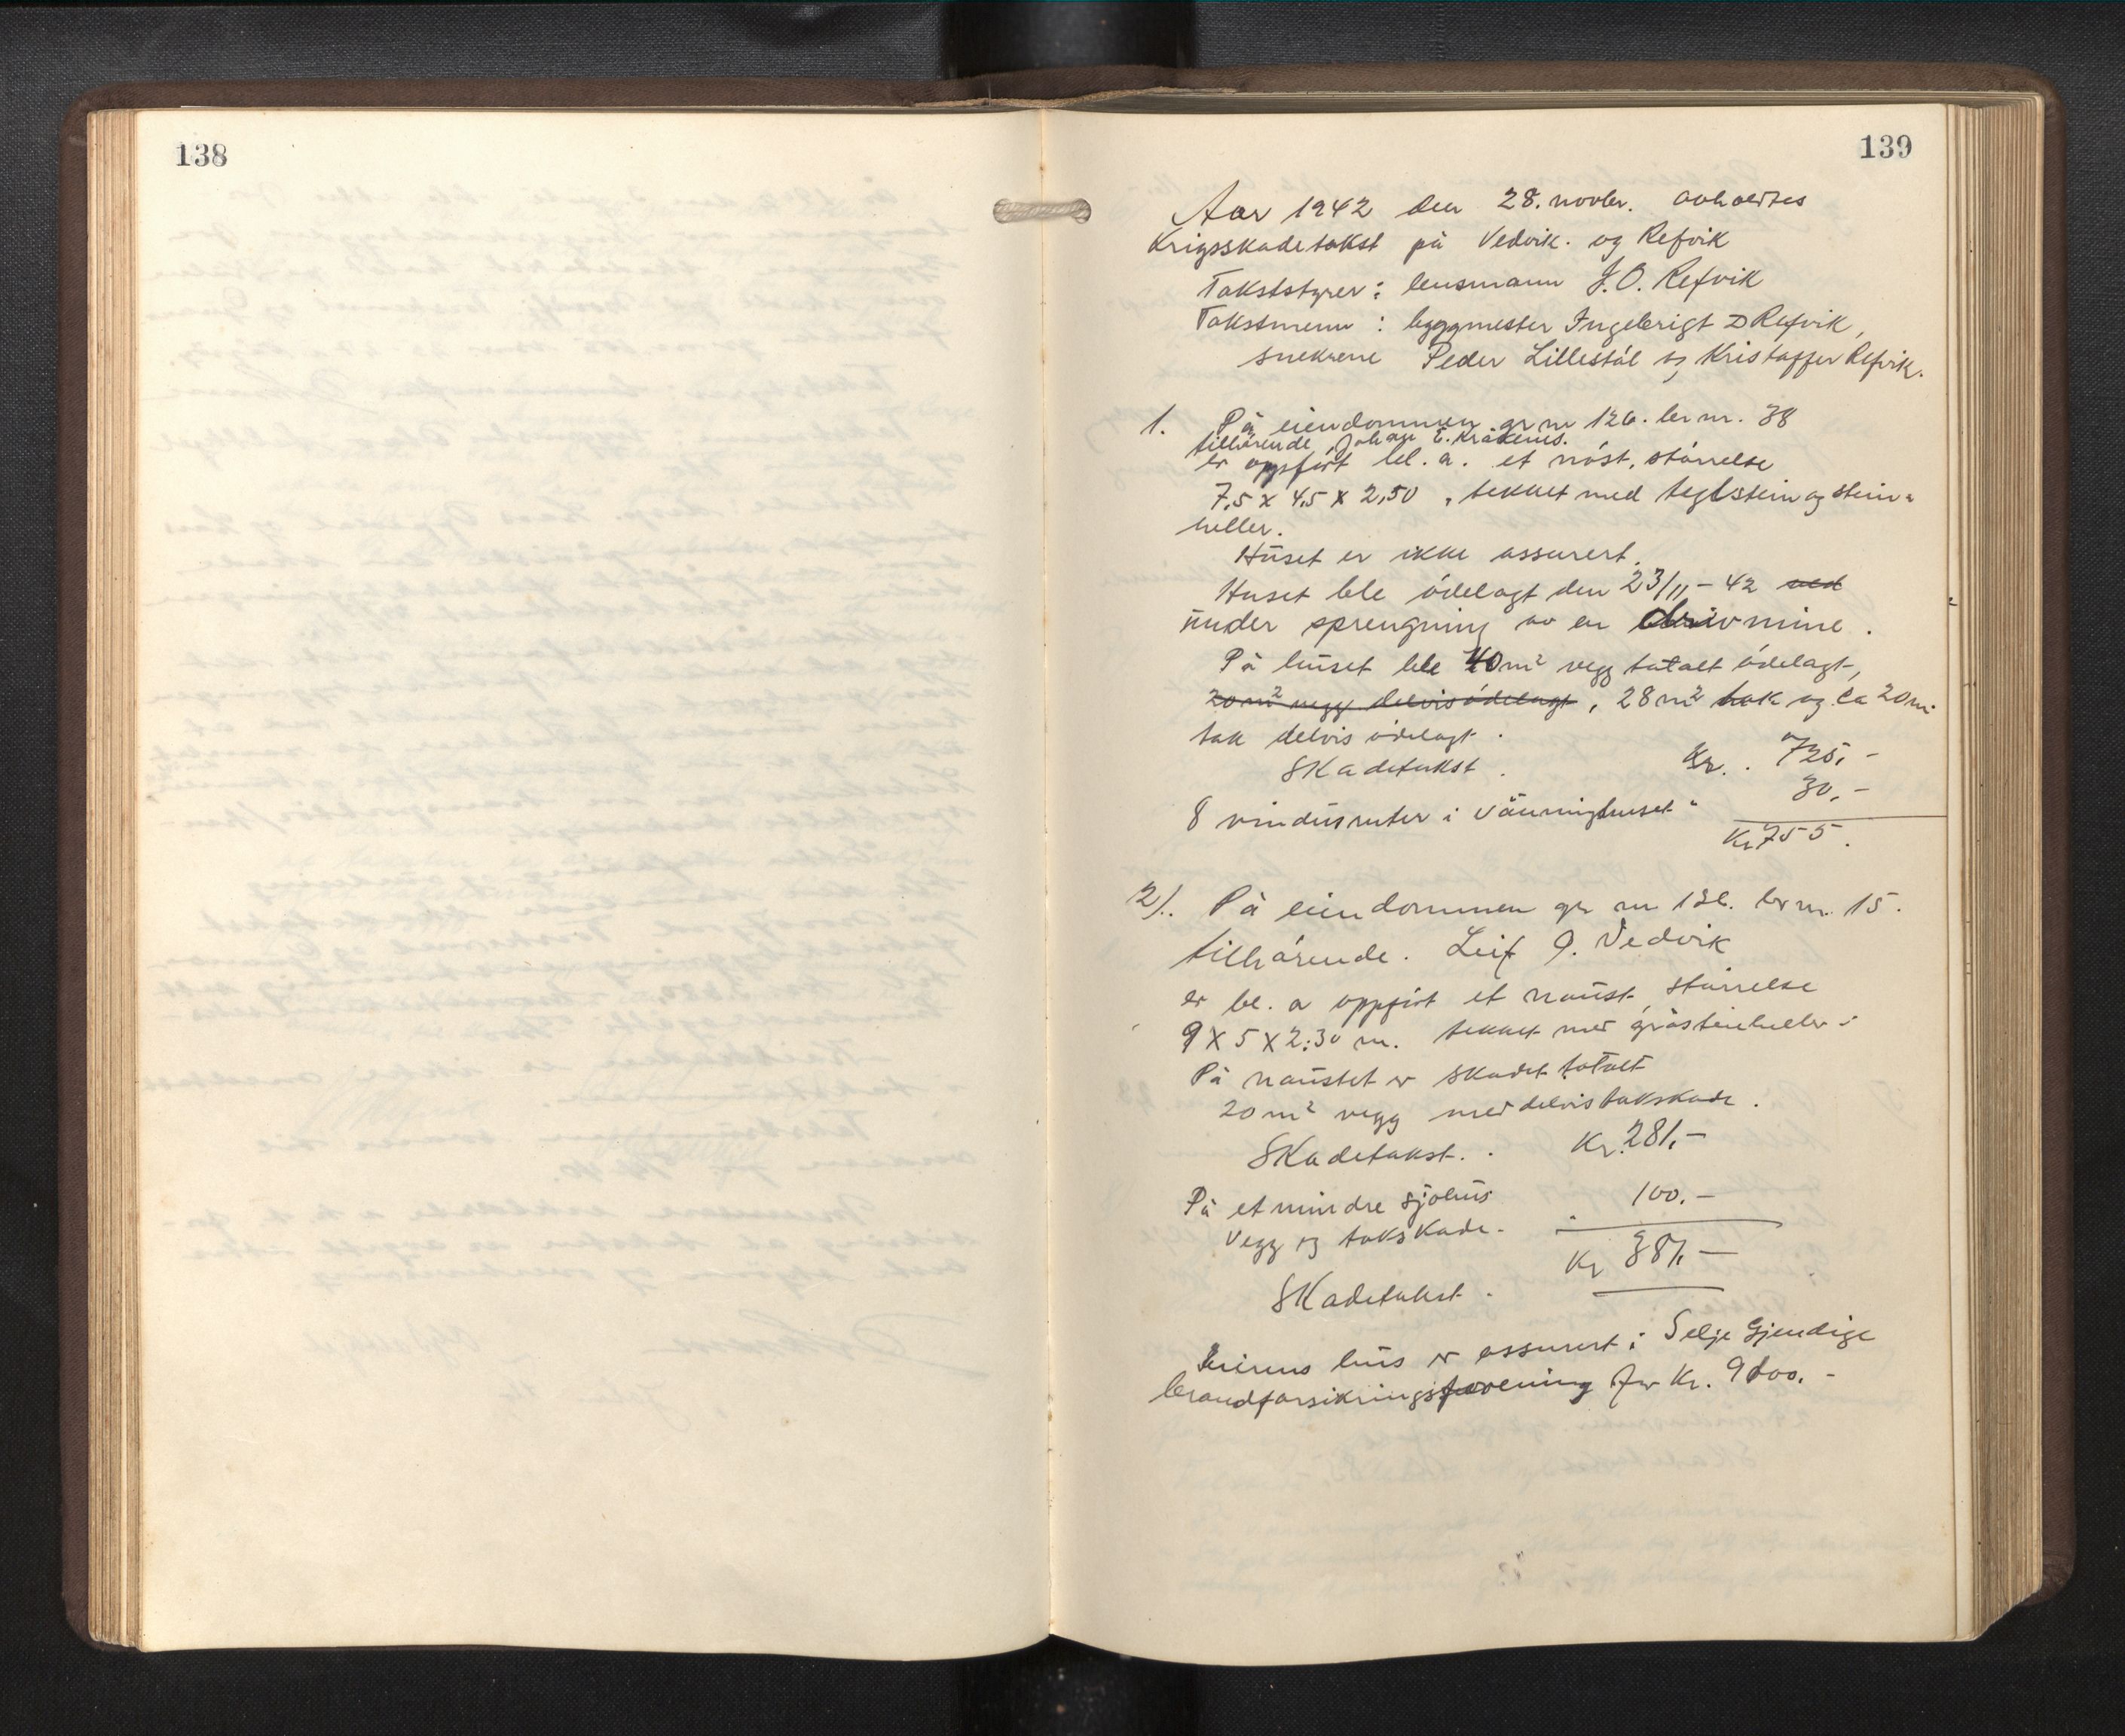 138
139
Aar 1942 den 28. novbr. avholdtes
Krigsskadetakst på Vedvik. og Refvik
Takststyrer: lensmann J. O. Refvik
Takstmenn: byggmester Ingebrigt D Refvik,
snekrene Peder Lillestøl og Kristoffer Refvik.
1. På eiendommen gr nr 126. br nr. 38
tilhørende, Johan E. Kråkenes.
er oppført bl. a. et nøst, størrelse
7,5 x 4,5 x 2,50, tekket med teglstein og stein-
heller.
Huset er ikke assurert.
Huset ble ødelagt den 23/11-42 ved
under sprengning av en drivmine.
På huset ble 40 m² vegg totalt ødelagt,
20 m² vegg delvis ødelagt, 28 m² tak og ca 20 m²
tak delvis ødelagt.
Skadetakst. Kr. 725,-
8 vindusruter i våningshuset " 30,-
Kr 755.
2). På eiendommen gr nr 136. br nr. 15.
tilhørende. Leif J. Vedvik
er bl. a oppført et naust, størrelse
9 X 5 X 2:30 m. tekket med gråsteinheller.
På naustet er skadet totalt
20 m² vegg med delvis takskade.
Skadetakst. Kr. 281,-
På et mindre sjøhus 100.-
Vegg og takskade.
Kr 381,-
Skadetakst.
hus er assurert i Selje Gjendige
brandforsikringsforening for Kr.